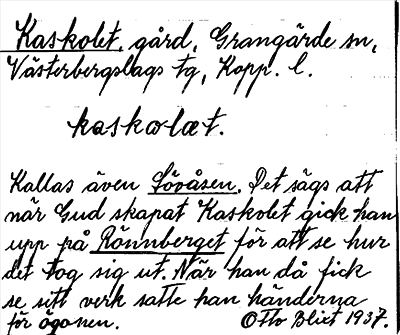 Kaskolet, gård, Grangärde sn,
Västerbergslags tg, Kopp. l.
kaskolæt.
Kallas även Sövåsen. Det sägs att
när Gud skapat Kaskolet gick han
upp på Rönnberget för att se hur
det tog sig ut. När han då fick
se sitt verk satte han händerna
för ögonen. Otto Blixt 1937.